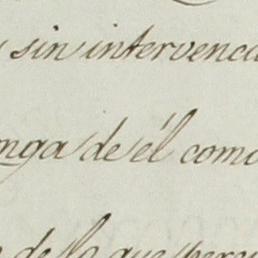 sin intervenc
nga de él como
de lo que